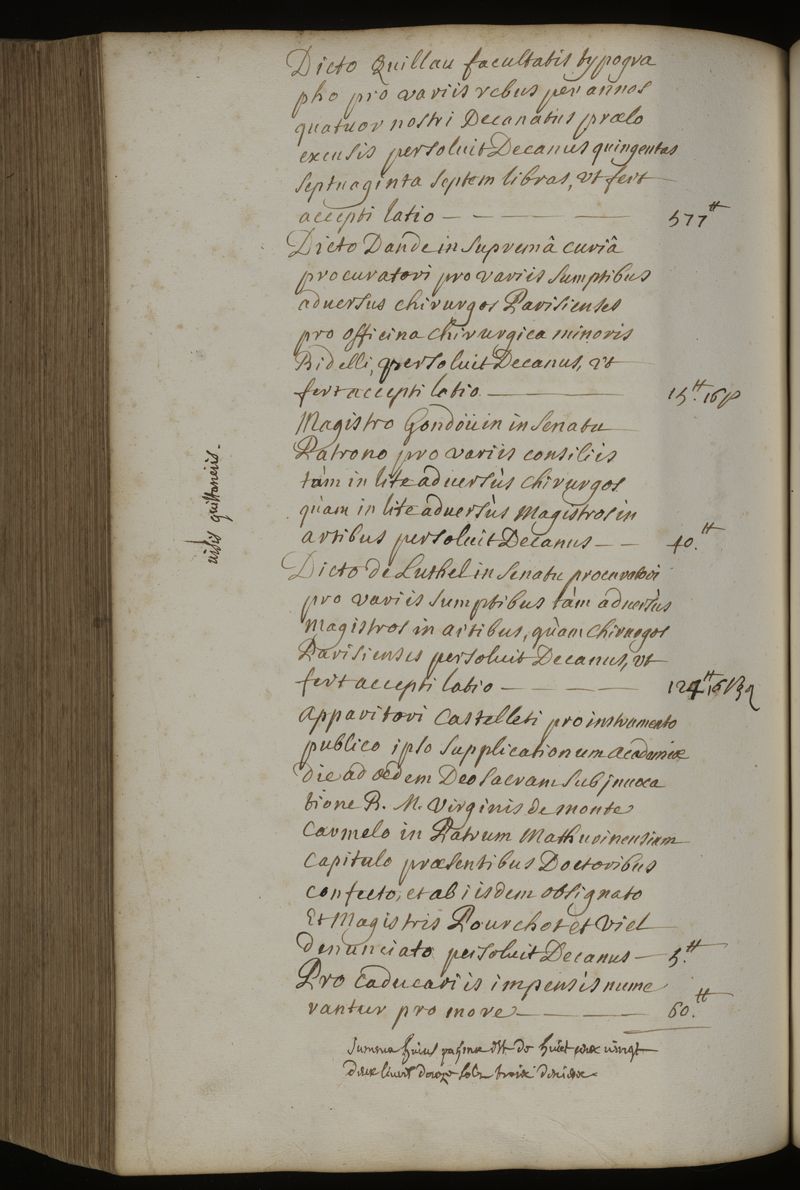 Dicto Quillau facultatis typogra
pho pro variis rebus per annos
quatuor nostri Decanatus prælo
excusis persoluit Decanus quingentas
septuaginta septem libras, vt fert
accepti latio — — — — — 577 ᵗᵗ
Dicto Dande in Supremâ curiâ
procuratori pro variis sumptibus
aduersus chirurgos Parisienses
pro officina chirurgica minoris
Bidelli, persoluit Decanus, vt
fert accepti latio — 15 ᵗᵗ. 16 ſ
Magistro Gondoüin in Senatu
Patrono pro variis consiliis
tàm in lite aduersùs chirurgos
quàm in lite aduersùs Magistros in
artibus persoluit Decanus — — 40. ᵗᵗ
visis quittanciis.
Dicto de Luthel in Senatu procuratori
pro variis sumptibus tàm aduersùs
Magistros in artibus, quàm chirurgos
Parisienses persoluit Decanus, vt
fert accepti latio — — — — 124 ᵗᵗ 16 ſ 3 d
Apparitori Castelleti pro instrumento
publico ipso supplicationum Academiæ
die ad ædem Deo sacram sub jnuoca
tione B. M. Virginis de monte
Carmelo in Patrum Mathurinensium
Capitulo præsentibus Doctoribus
confecto, et ab iisdem obsignato
Et Magistris Pourchot et Viel
denunciato persoluit Decanus — 5. ᵗᵗ
Pro caducariis impensis nume
rantur pro more — — — 60. ᵗᵗ
Summa huius paginæ est de huict cens vingt
deux liures douze solz trois deniers.